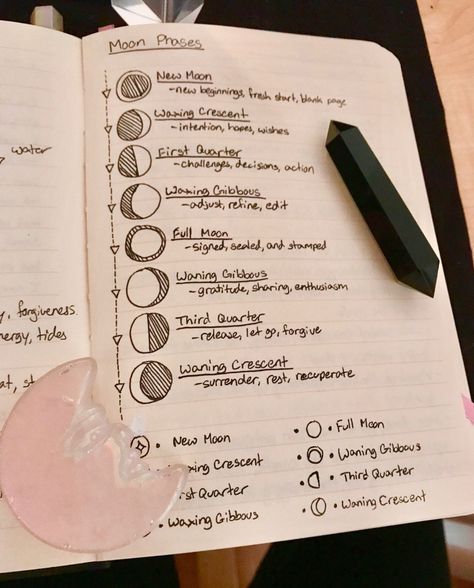 Moon Phases
New Moon
- new beginnings, fresh start, blank page
Waxing Crescent
- intention, hopes, wishes
First Quarter
- challenges, decisions, action
Waxing Gibbous
- adjust, refine, edit
Full Moon
- signed, sealed, and stamped
Waning Gibbous
- gratitude, sharing, enthusiasm
Third Quarter
- release, let go, forgive
Waning Crescent
- surrender, rest, recuperate
• New Moon
Crescent
Quarter
• Waxing Gibbous
• Full Moon
• Waning Gibbous
• Third Quarter
• Waning Crescent
water
forgiveness
tides